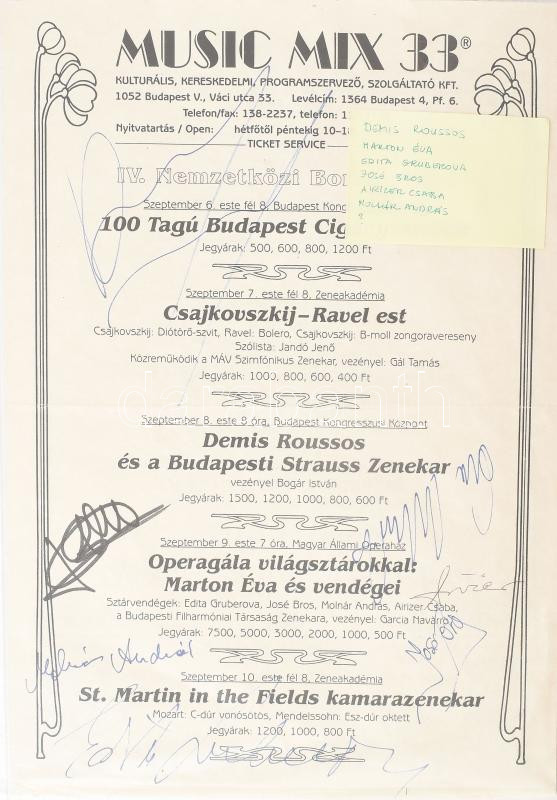 MUSIC MIX 33®
KULTURÁLIS, KERESKEDELMI, PROGRAMSZERVEZŐ, SZOLGÁLTATÓ KFT.
1052 Budapest V., Váci utca 33. Levélcím: 1364 Budapest 4, Pf. 6.
Telefon/fax: 138-2237, telefon: 1
Nyitvatartás / Open: hétfőtől péntekig 10–18
TICKET SERVICE
DEMIS ROUSSOS
MARTON ÉVA
EDITA GRUBEROVA
JOSÉ BROS
AIRIZER CSABA
MOLNÁR ANDRÁS
?
IV. Nemzetközi Bor
Szeptember 6. este fél 8, Budapest Kong
100 Tagú Budapest Cig
Jegyárak: 500, 600, 800, 1200 Ft
Szeptember 7. este fél 8, Zeneakadémia
Csajkovszkij–Ravel est
Csajkovszkij: Diótörő-szvit, Ravel: Bolero, Csajkovszkij: B-moll zongoraverseny
Szólista: Jandó Jenő
Közreműködik a MÁV Szimfónikus Zenekar, vezényel: Gál Tamás
Jegyárak: 1000, 800, 600, 400 Ft
Szeptember 8. este 8 óra, Budapest Kongresszusi Központ
Demis Roussos
és a Budapesti Strauss Zenekar
vezényel Bogár István
Jegyárak: 1500, 1200, 1000, 800, 600 Ft
Szeptember 9. este 7 óra, Magyar Állami Operaház
Operagála világsztárokkal:
Marton Éva és vendégei
Sztárvendégek: Edita Gruberova, José Bros, Molnár András, Airizer Csaba,
a Budapesti Filharmóniai Társaság Zenekara, vezényel: Garcia Navarro
Jegyárak: 7500, 5000, 3000, 2000, 1000, 500 Ft
Molnár András
Szeptember 10. este fél 8, Zeneakadémia
St. Martin in the Fields kamarazenekar
Mozart: C-dúr vonósötös, Mendelssohn: Esz-dúr oktett
Jegyárak: 1200, 1000, 800 Ft